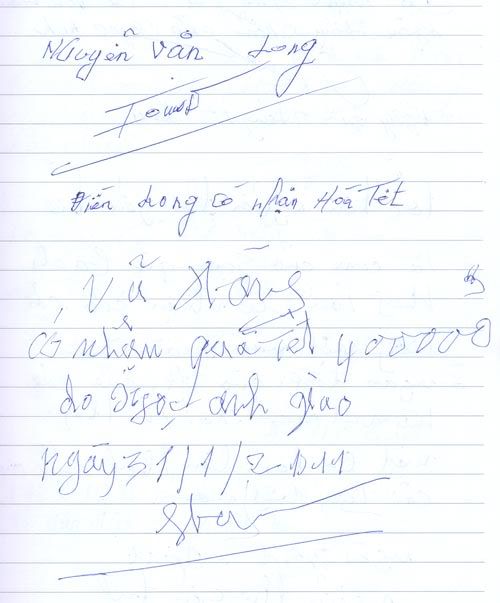 Nguyễn Văn Long
Long có nhận Hóa Tết
Vũ Hồng
có nhận quà Tết 400000
do Ngọc anh giao
ngày 31/1/2011